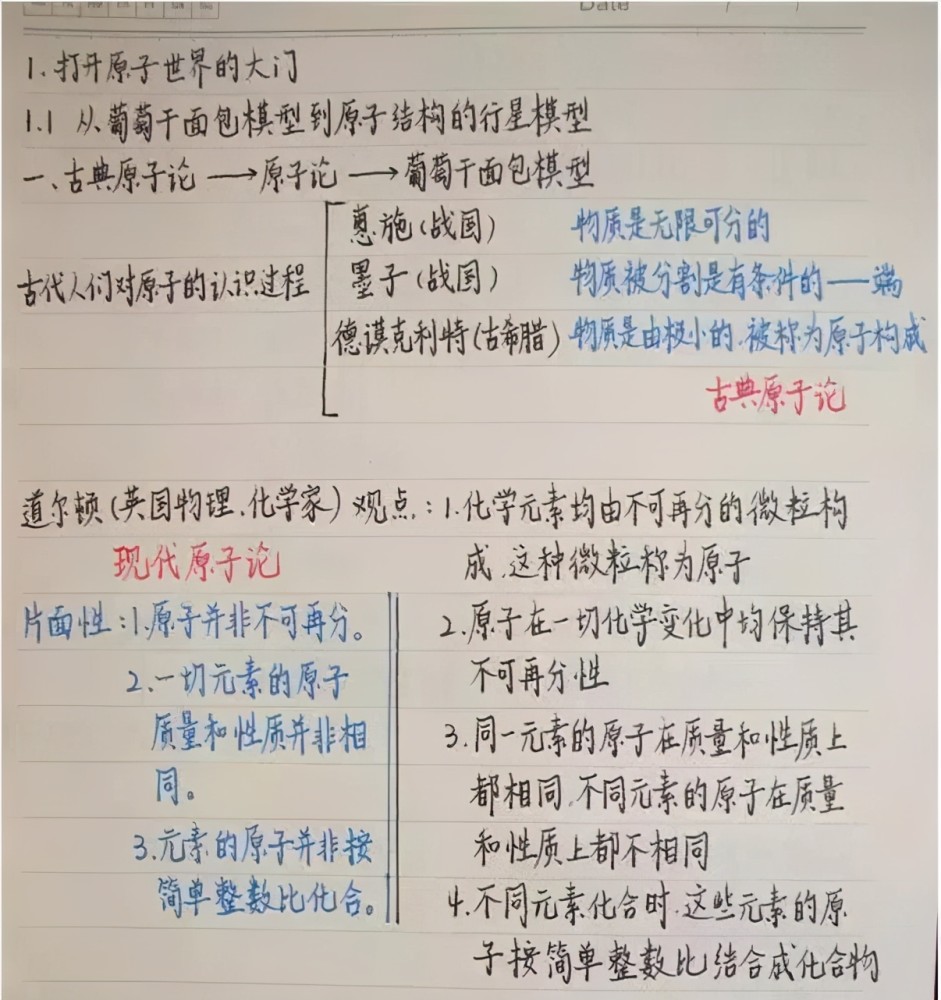 Date
1.打开原子世界的大门
1.1 从葡萄干面包模型到原子结构的行星模型
一、古典原子论 → 原子论 → 葡萄干面包模型
惠施(战国) 物质是无限可分的
古代人们对原子的认识过程 墨子(战国) 物质被分割是有条件的——端
德谟克利特(古希腊) 物质是由极小的、被称为原子构成
古典原子论
道尔顿(英国物理、化学家)观点:1.化学元素均由不可再分的微粒构
现代原子论 成,这种微粒称为原子
片面性:1.原子并非不可再分。 2.原子在一切化学变化中均保持其
2.一切元素的原子 不可再分性
质量和性质并非相 3.同一元素的原子在质量和性质上
同。 都相同,不同元素的原子在质量
3.元素的原子并非按 和性质上都不相同
简单整数比化合。 4.不同元素化合时,这些元素的原
子按简单整数比结合成化合物